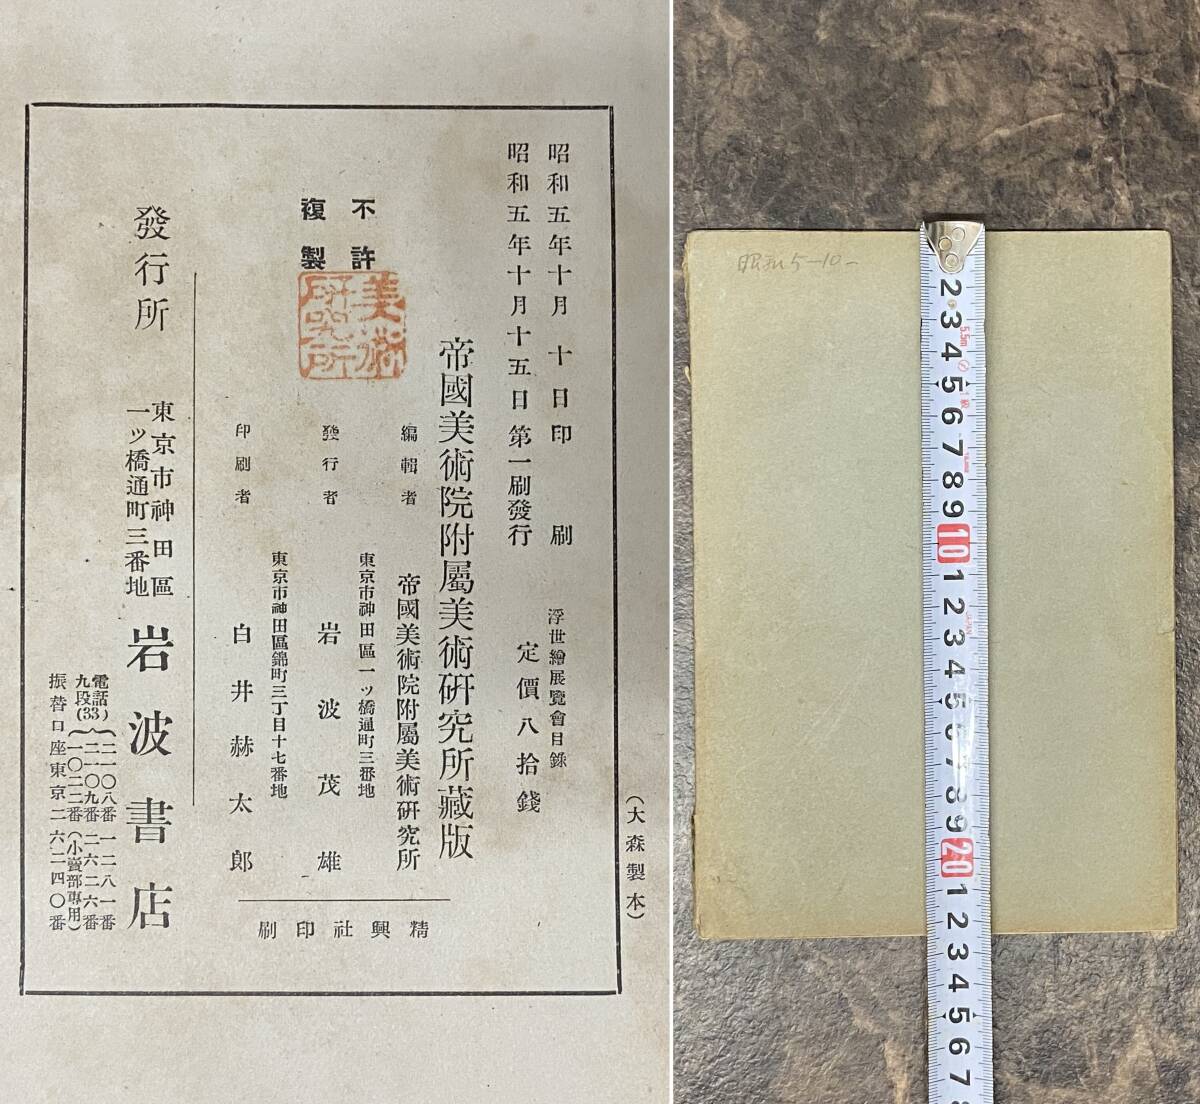 昭和五年十月十日印刷
昭和五年十月十五日第一刷發行
浮世繪展覽會目錄
定價八拾錢
帝國美術院附屬美術硏究所藏版
不許
複製
美術
研究所
編輯者
帝國美術院附屬美術硏究所
東京市神田區一ッ橋通町三番地
發行者
岩波茂雄
東京市神田區錦町三丁目十七番地
印刷者
白井赫太郎
精興社印刷
發行所
東京市神田區
一ッ橋通町三番地
岩波書店
電話
九段(33)
二一〇八番 一二八一番
二一〇九番 二六二六番
一〇二二番(小賣部專用)
振替口座東京二六二四〇番
(大森製本)
昭和5-10-
2 3 4 5 6 7 8 9 10 1 2 3 4 5 6 7 8 9 20 1 2 3 4 5 6 7
5.5m
1級
JAPAN